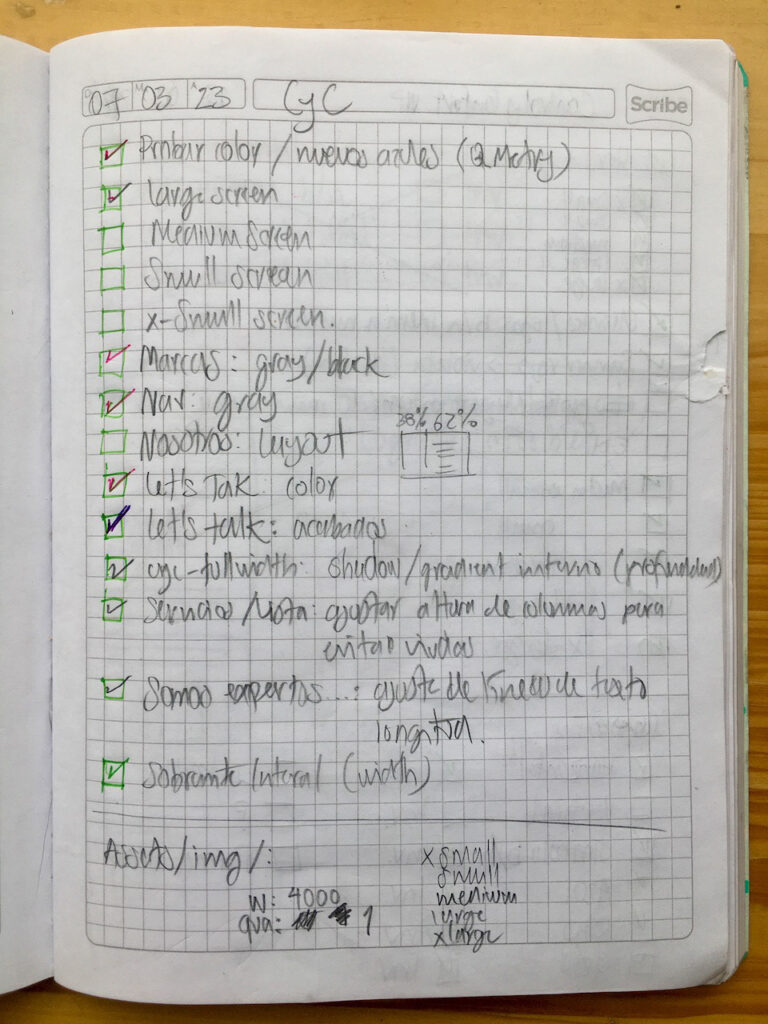 07 03 '23 CyC Scribe
Probar color / nuevos azules
large screen
Medium Screen
Small screen
x-Small screen.
Marcas: gray/black
Nav: gray
38% 62%
Nosotros: layout
Let's Talk: color
Let's talk: acabados
cyc-fullwidth: shadow/gradient interno (profundidad)
Servicios/Nota: ajustar altura de columnas para
evitar viudas
Somos expertos...: ajuste de líneas de texto
longitud.
Sobrante lateral (width)
Assets/img/:
xsmall
small
w: 4000 medium
qua: 1 large
xlarge